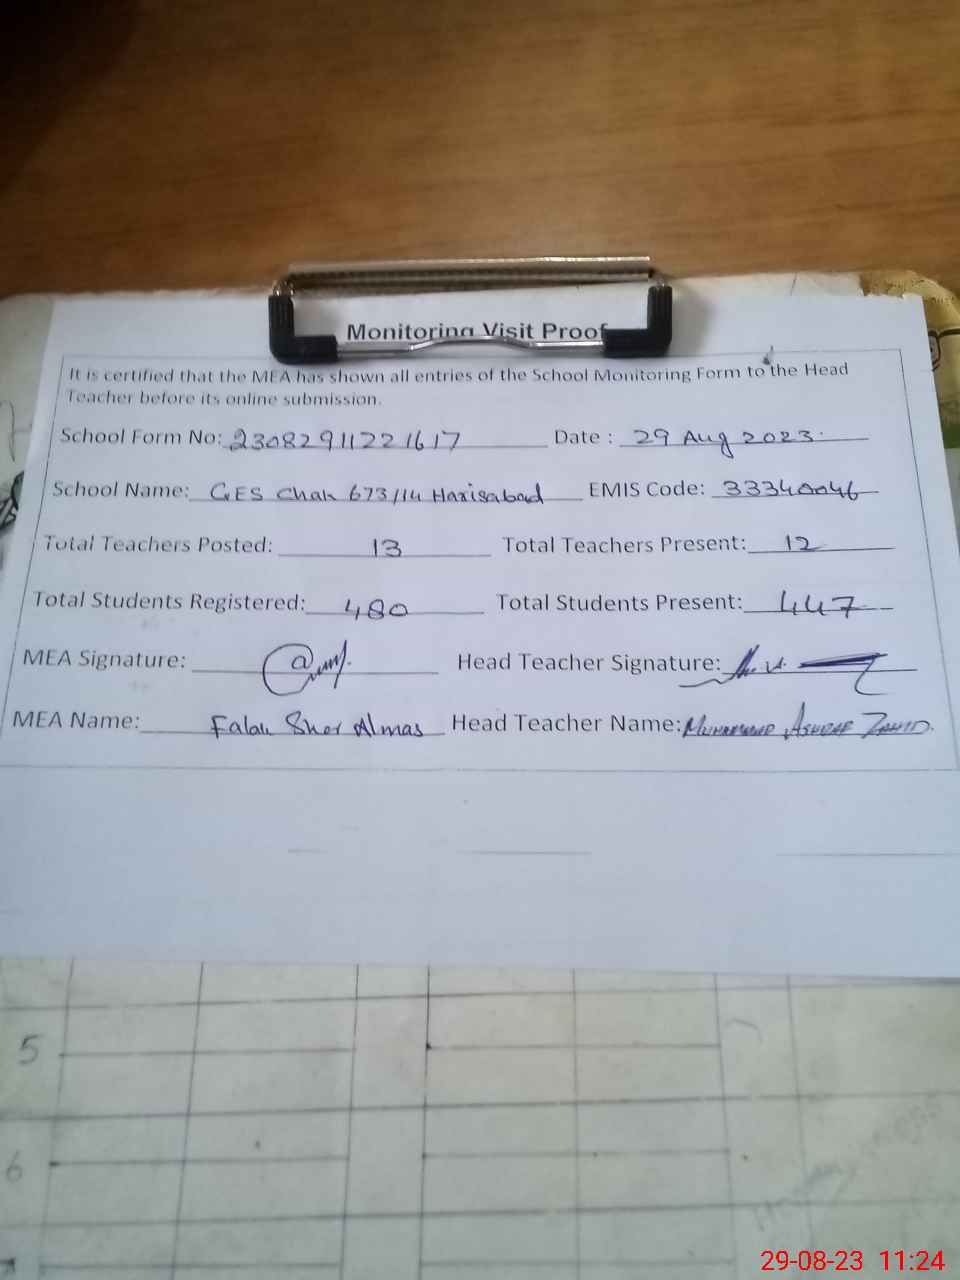 Monitoring Visit Proof
It is certified that the MEA has shown all entries of the School Monitoring Form to the Head
Teacher before its online submission.
School Form No: 23082911221617 Date : 29 Aug 2023
School Name: GES Chak 673/14 Harisabad EMIS Code: 33340046
Total Teachers Posted: 13 Total Teachers Present: 12
Total Students Registered: 480 Total Students Present: 447
MEA Signature: Head Teacher Signature:
MEA Name: Falak Sher Almas Head Teacher Name: MUHAMMAD ASHRAF ZAHID.
5
6
29-08-23 11:24